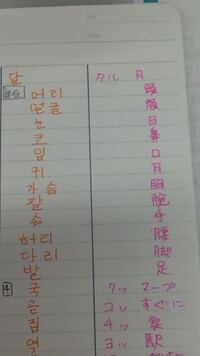 달 タル 月
머리 頭
얼굴 顔
눈 目
코 鼻
입 口
귀 耳
가슴 胸
팔 腕
손 手
허리 腰
다리 脚
발 足
국 クッ スープ
곧 コッ すぐに
집 チッ 家
역 ヨッ 駅